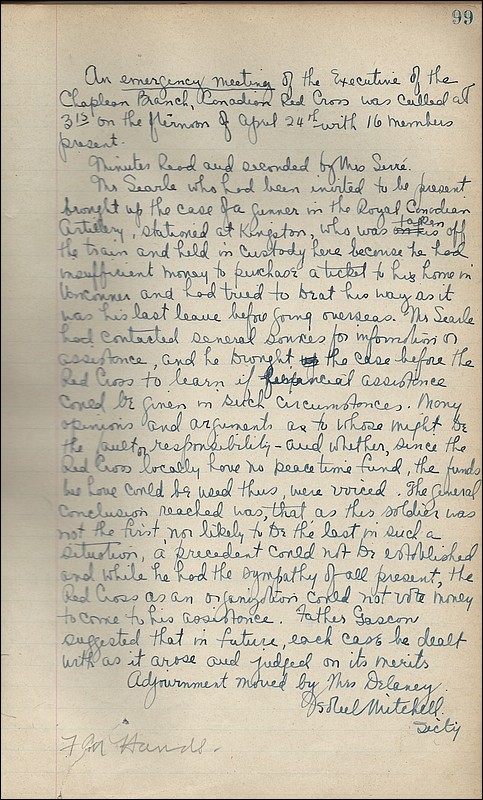 99
An emergency meeting of the Executive of the
Chapleau Branch, Canadian Red Cross was called at
3¹⁵ on the fternoon of April 24th with 16 members
present.
Minutes Read and seconded by Mrs Serré.
Mr Searle who had been invited to be present
brought up the case of a gunner in the Royal Canadian
Artillery, stationed at Kingston, who was taken off
the train and held in custody here because he had
insufficient money to purchase a ticket to his home in
Vancouver and had tried to beat his way as it
was his last leave before going overseas. Mr Searle
had contacted several sources for information or
assistance, and he brought the case before the
Red Cross to learn if financial assistance
could be given in such circumstances. Many
opinions and arguments as to whose might be
the fault or responsibility - and whether, since the
Red Cross locally have no peace time fund, the funds
we have could be used thus, were voiced. The general
conclusion reached was, that as this soldier was
not the first, nor likely to be the last in such a
situation, a precedent could not be established
and while he had the sympathy of all present, the
Red Cross as an organization could not vote money
to come to his assistance. Father Gascon
suggested that in future, each case be dealt
with as it arose and judged on its merits
Adjournment moved by Mrs Delaney.
Isobel Mitchell
Sec'ty